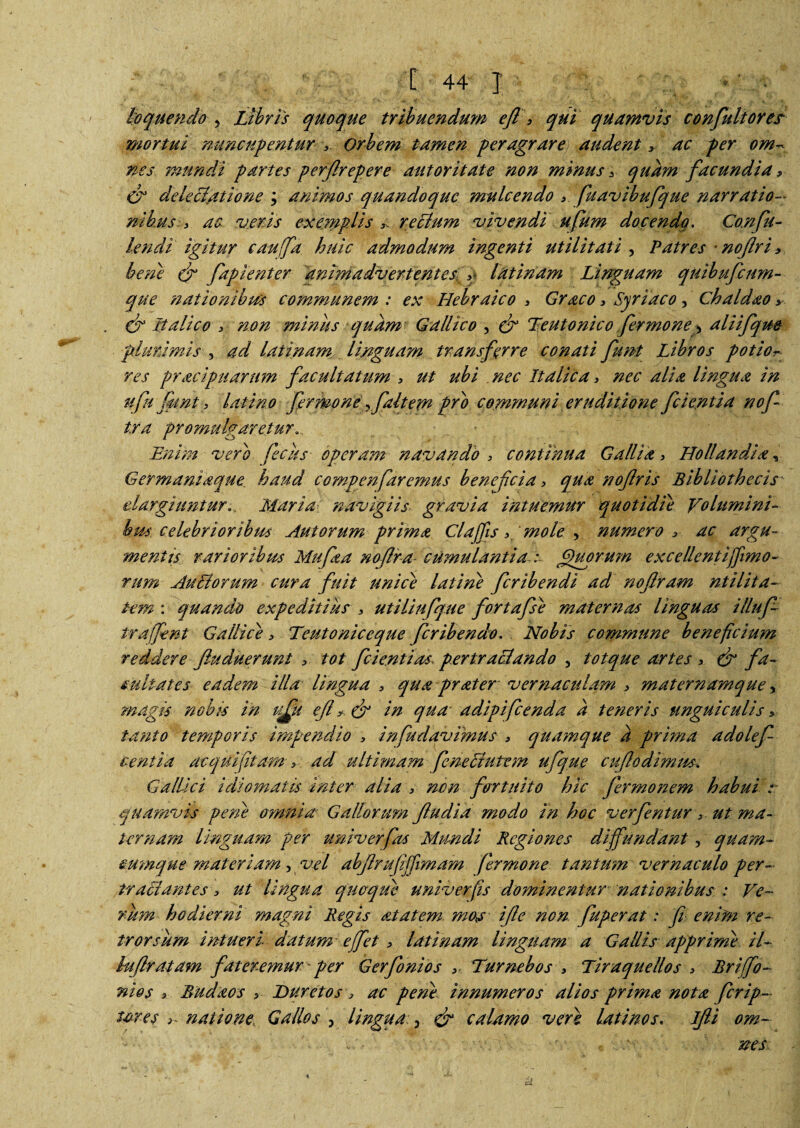 [ 44 ]
loquendo , Libris quoque tribuendum eſt , qui quamvis conſultores
mortui nuncupentur , Orbem tamen peragrare audent , ac per om-
nes mundi partes perſtrepere autoritate non minus , quàm facundia ,
& delectatione ; animos quandoque mulcendo , ſuavibuſque narratio-
nibus , ac veris exemplis , rectum vivendi uſum docendo. Conſu-
lendi igitur cauſſa huic admodum ingenti utilitati , Patres noſtri ,
benè & ſapienter animadvertentes , latinam Linguam quibuſcum-
que nationibus communem : ex Hebraico , Græco , Syriaco , Chaldæo ,
& Italico , non minùs quàm Gallico , & Teutonico ſermone , aliiſque
plurimis , ad latinam linguam transferre conati ſunt Libros potio-
res præcipuarum facultatum , ut ubi nec Italica , nec aliæ linguæ in
uſu ſunt , latino ſermone , ſaltem prò communi eruditione ſcientia noſ-
tra promulgaretur.
Enim verò ſecùs operam navando , continua Galliæ , Hollandiæ ,
Germaniæque haud compenſaremus beneficia , quæ noſtris Bibliothecis
elargiuntur. Maria navigiis gravia intuemur quotidiè Volumini-
bus celebrioribus Autorum primæ Claſſis , mole , numero , ac argu-
mentis rarioribus Muſæa noſtra cumulantia : Quorum excellentiſſimo-
rum Auctorum cura fuit unicè latinè ſcribendi ad noſtram ntilita-
tem : quando expeditiùs , utiliuſque fortaſsè maternas linguas illuſ-
traſſent Gallicè , Teutoniceque ſcribendo. Nobis commune beneficium
reddere ſtuduerunt , tot ſcientias pertractando , totque artes , & fa-
cultates eadem illa lingua , quæ præter vernaculam , maternamque ,
magis nobis in uſu eſt , & in qua adipiſcenda à teneris unguiculis ,
tanto temporis impendio , inſudavimus , quamque à prima adoleſ-
centia acquiſitam , ad ultimam ſenectutem uſque cuſtodimus.
Gallici idiomatis inter alia , non fortuito hic ſermonem habui :
quamvis penè omnia Gallorum ſtudia modo in hoc verſentur , ut ma-
ternam linguam per univerſas Mundi Regiones diffundant , quam-
cumque materiam , vel abſtruſiſſimam ſermone tantum vernaculo per-
tractantes , ut lingua quoquè univerſis dominentur nationibus : Ve-
rùm hodierni magni Regis ætatem mos iſte non ſuperat : ſi enim re-
trorsùm intueri datum eſſet , latinam linguam a Gallis apprimè il-
luſtratam fateremur per Gerſonios , Turnebos , Tiraquellos , Briſſo-
nios , Budæos , Duretos , ac penè innumeros alios primæ notæ ſcrip-
tores , natione Gallos , lingua , & calamo verè latinos. Iſti om-
nes